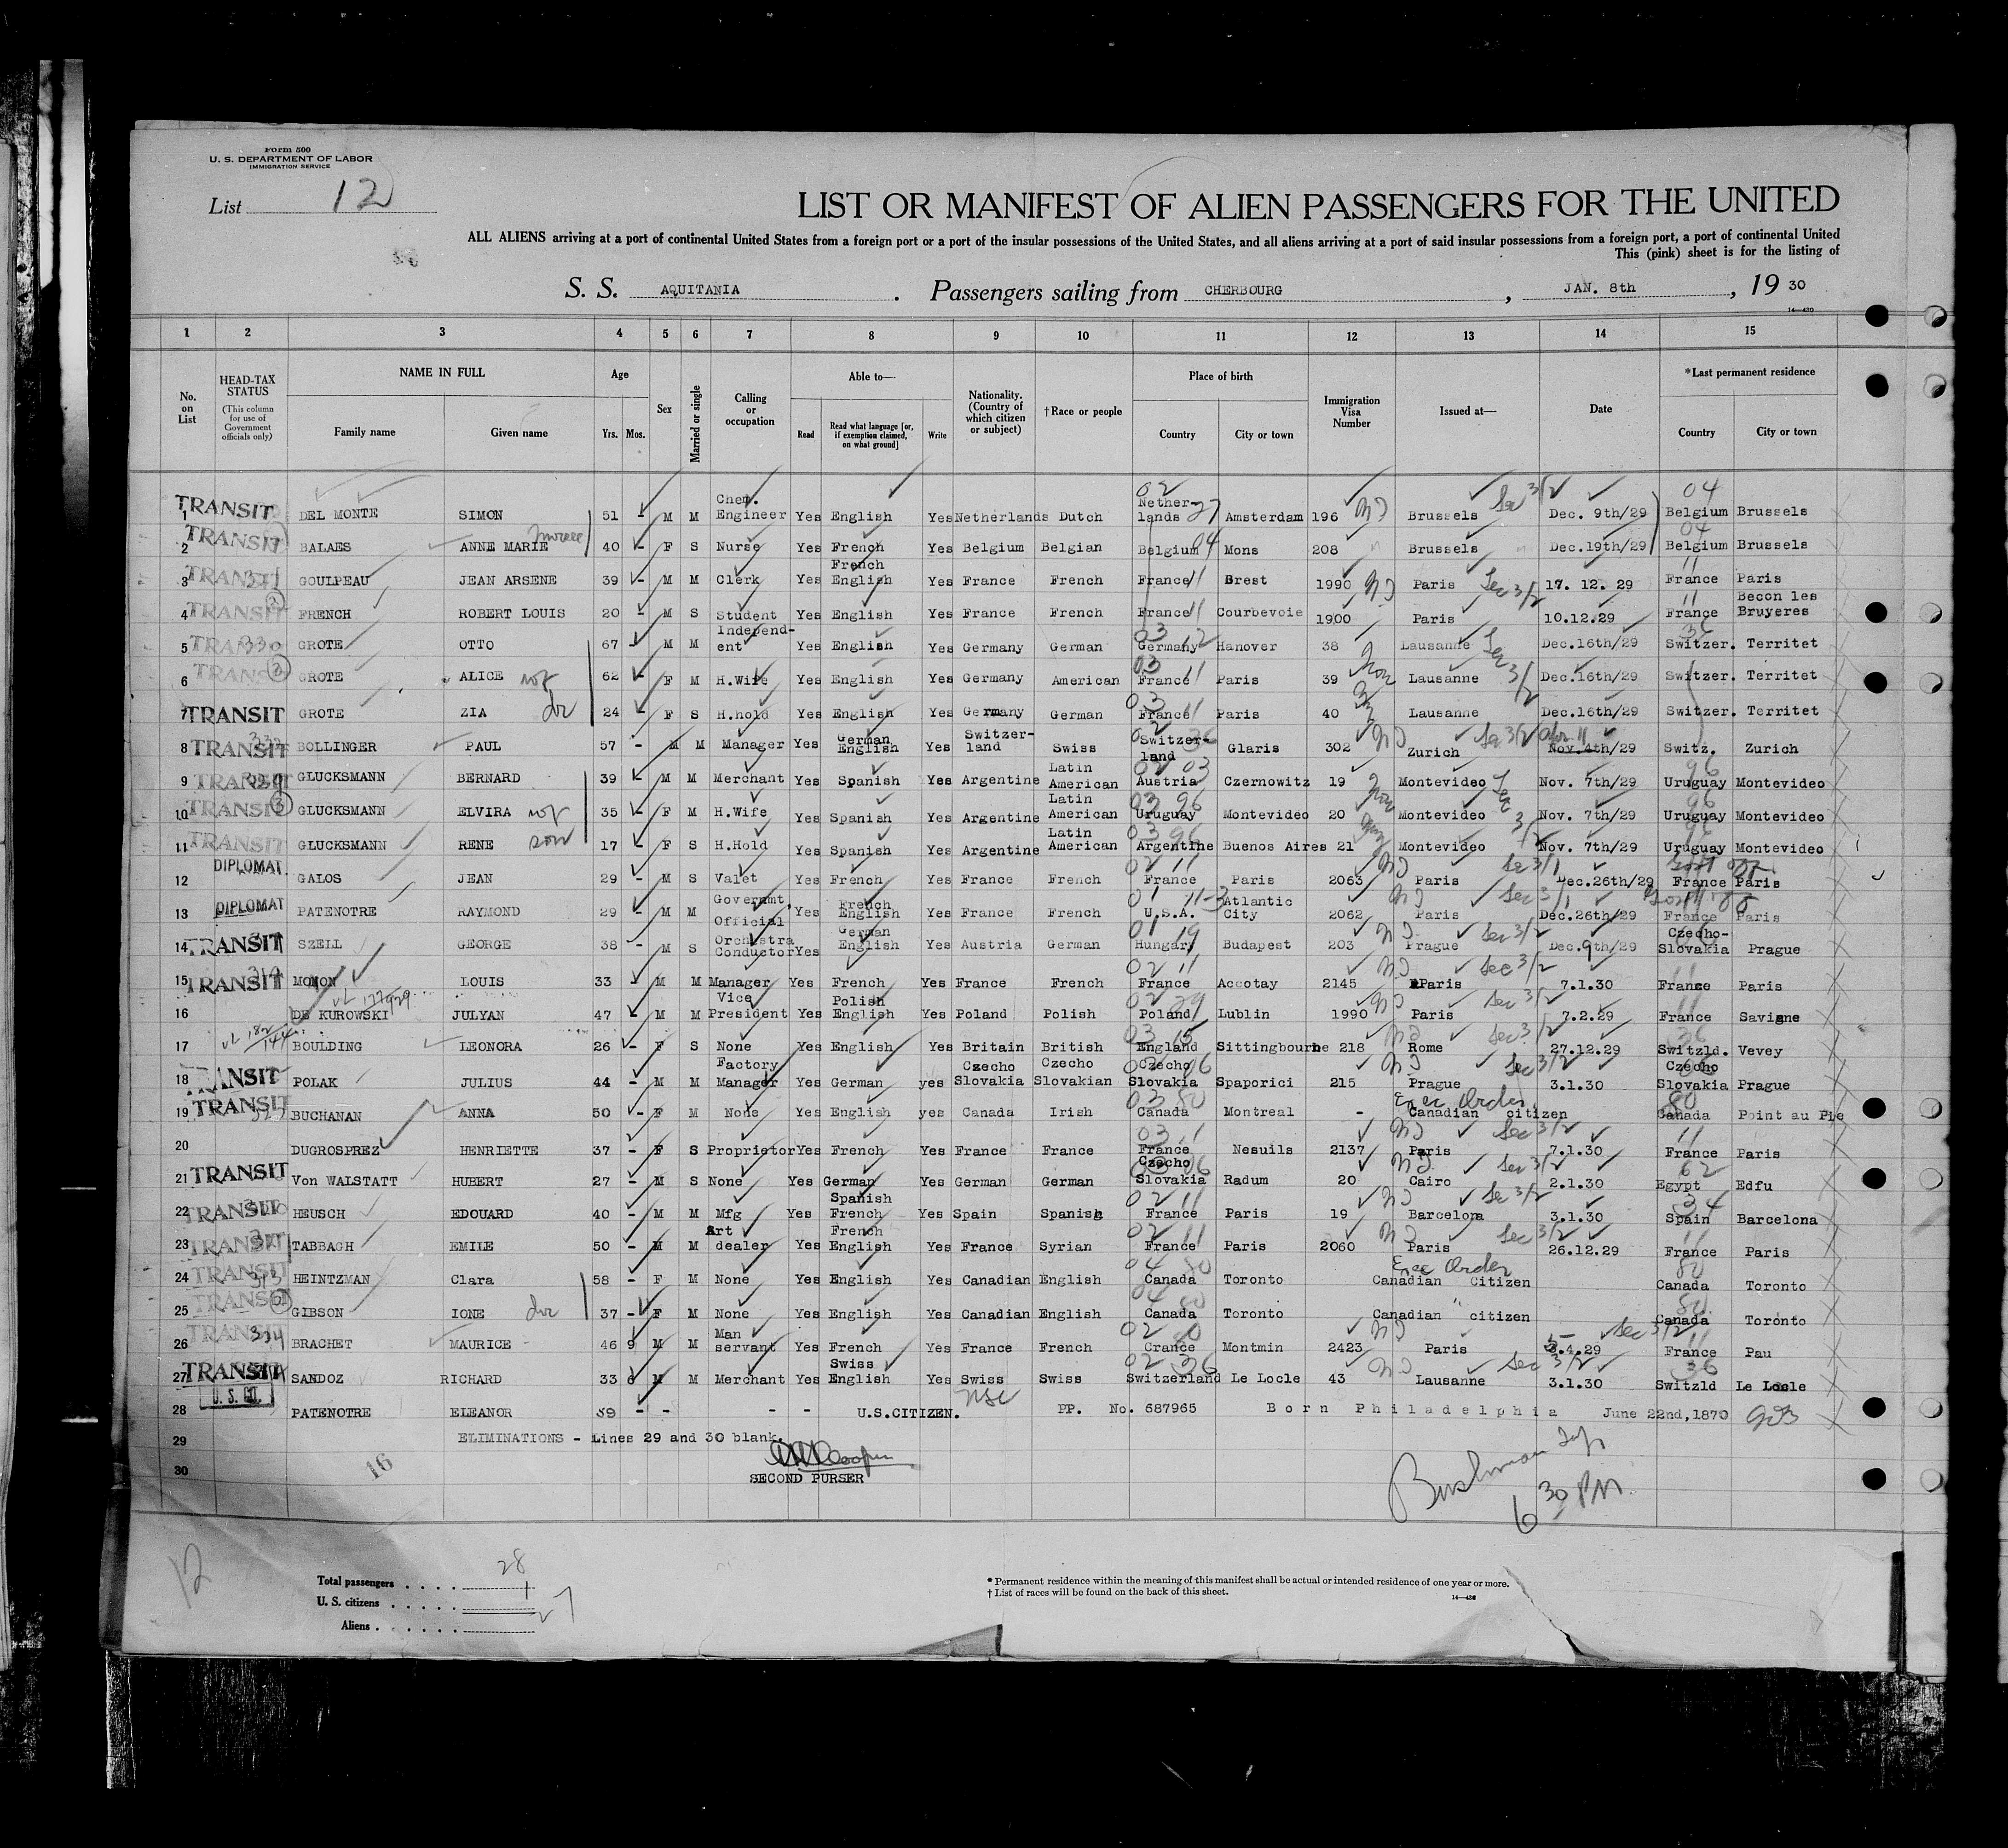 Form 500
U. S. DEPARTMENT OF LABOR
IMMIGRATION SERVICE
List 12
LIST OR MANIFEST OF ALIEN PASSENGERS FOR THE UNITED
ALL ALIENS arriving at a port of continental United States from a foreign port or a port of the insular possessions of the United States, and all aliens arriving at a port of said insular possessions from a foreign port, a port of continental United
This (pink) sheet is for the listing of
S. S. AQUITANIA . Passengers sailing from CHERBOURG , JAN. 8th , 19 30
14—430
1 2 3 4 5 6 7 8 9 10 11 12 13 14 15
No. on List HEAD-TAX STATUS (This column for use of Government officials only) NAME IN FULL Family name Given name Age Yrs. Mos. Sex Married or single Calling or occupation Able to— Read Read what language [or, if exemption claimed, on what ground] Write Nationality. (Country of which citizen or subject) †Race or people Place of birth Country City or town Immigration Visa Number Issued at— Date *Last permanent residence Country City or town
1 TRANSIT DEL MONTE SIMON 51 - M M Chem. Engineer Yes English Yes Netherlands Dutch 02 Nether-lands 27 Amsterdam 196 Brussels Sec 3/2 Dec. 9th/29 04 Belgium Brussels
2 TRANSIT BALAES ANNE MARIE 40 - F S Nurse Yes French Yes Belgium Belgian Belgium 04 Mons 208 Brussels Dec.19th/29 04 Belgium Brussels
3 TRANSIT GOULPEAU JEAN ARSENE 39 - M M Clerk Yes French English Yes France French France 11 Brest 1990 Paris Sec 3/2 17. 12. 29 11 France Paris
4 TRANSIT FRENCH ROBERT LOUIS 20 - M S Student Yes English Yes France French France 11 Courbevoie 1900 Paris 10.12.29 11 France Becon les Bruyeres
5 TRANSIT GROTE OTTO 67 - M M Independ-ent Yes English Yes Germany German 03 Germany 12 Hanover 38 Lausanne Sec 3/2 Dec.16th/29 36 Switzer. Territet
6 TRANSIT GROTE ALICE wf 62 - F M H.Wife Yes English Yes Germany American 03 France 11 Paris 39 Lausanne Dec.16th/29 Switzer. Territet
7 TRANSIT GROTE ZIA dr 24 - F S H.hold Yes English Yes Germany German 03 France 11 Paris 40 Lausanne Dec.16th/29 Switzer. Territet
8 TRANSIT BOLLINGER PAUL 57 - M M Manager Yes German English Yes Switzer-land Swiss 02 Switzer-land 36 Glaris 302 Zurich Sec 3/2 Nov.4th/29 Switz. Zurich
9 TRANSIT GLUCKSMANN BERNARD 39 - M M Merchant Yes Spanish Yes Argentine Latin American 02 03 Austria Czernowitz 19 Montevideo Sec 3/2 Nov. 7th/29 96 Uruguay Montevideo
10 TRANSIT GLUCKSMANN ELVIRA wf 35 - F M H.Wife Yes Spanish Yes Argentine Latin American 03 96 Uruguay Montevideo 20 Montevideo Nov. 7th/29 96 Uruguay Montevideo
11 TRANSIT GLUCKSMANN RENE son 17 - F S H.Hold Yes Spanish Yes Argentine Latin American 03 96 Argentine Buenos Aires 21 Montevideo Nov. 7th/29 96 Uruguay Montevideo
12 DIPLOMAT. GALOS JEAN 29 - M S Valet Yes French Yes France French 02 11 France Paris 2063 Paris Sec 3/1 Dec.26th/29 France Paris
13 DIPLOMAT PATENOTRE RAYMOND 29 - M M Governmt. Official Yes French English Yes France French 01 U.S.A. Atlantic City 2062 Paris Sec 3/1 Dec.26th/29 France Paris
14 TRANSIT SZELL GEORGE 38 - M S Orchestra Conductor Yes German English Yes Austria German 01 19 Hungary Budapest 203 Prague Sec 3/2 Dec.9th/29 Czecho-Slovakia Prague
15 TRANSIT MONON LOUIS 33 M M Manager Yes French Yes France French 02 11 France Accotay 2145 Paris Sec 3/2 7.1.30 11 France Paris
16 DE KUROWSKI JULYAN 47 - M M Vice President Yes Polish English Yes Poland Polish 02 29 Poland Lublin 1990 Paris Sec 3/2 7.2.29 11 France Savigne
17 BOULDING LEONORA 26 - F S None Yes English Yes Britain British 03 15 England Sittingbourne 218 Rome Sec 3/2 27.12.29 36 Switzld. Vevey
18 TRANSIT POLAK JULIUS 44 - M M Factory Manager Yes German yes Czecho Slovakia Czecho Slovakian 02 06 Czecho Slovakia Spaporici 215 Prague Sec 3/2 3.1.30 Czecho Slovakia Prague
19 TRANSIT BUCHANAN ANNA 50 - F M None Yes English yes Canada Irish 03 80 Canada Montreal - Exec Order Canadian citizen 80 Canada Point au Pie
20 DUGROSPREZ HENRIETTE 37 - F S Proprietor Yes French Yes France France 03 11 France Nesuils 2137 Paris Sec 3/2 7.1.30 11 France Paris
21 TRANSIT Von WALSTATT HUBERT 27 - M S None Yes German Yes German German Czecho 06 Slovakia Radum 20 Cairo Sec 3/2 2.1.30 62 Egypt Edfu
22 TRANSIT HEUSCH EDOUARD 40 - M M Mfg Yes Spanish French Yes Spain Spanish 02 11 France Paris 19 Barcelona Sec 3/2 3.1.30 34 Spain Barcelona
23 TRANSIT TABBAGH EMILE 50 - M M Art dealer Yes French English Yes France Syrian 02 11 France Paris 2060 Paris Sec 3/2 26.12.29 11 France Paris
24 TRANSIT HEINTZMAN Clara 58 - F M None Yes English Yes Canadian English 04 80 Canada Toronto Exec Order Canadian Citizen 80 Canada Toronto
25 TRANSIT GIBSON IONE dr 37 - F M None Yes English Yes Canadian English 04 80 Canada Toronto Canadian " citizen 80 Canada Toronto
26 TRANSIT BRACHET MAURICE - 46 9 M M Man servant Yes French Yes France French 02 Crance Montmin 2423 Paris Sec 3/2 .4.29 11 France Pau
27 TRANSIT SANDOZ RICHARD 33 6 M M Merchant Yes Swiss English Yes Swiss Swiss 02 36 Switzerland Le Locle 43 Lausanne Sec 3/2 3.1.30 36 Switzld Le Locle
28 U. S. CIT. PATENOTRE ELEANOR 59 - - - - U.S.CITIZEN. USC PP. No. 687965 Born Philadelphia June 22nd,1870
29 ELIMINATIONS - Lines 29 and 30 blank.
30 16
SECOND PURSER
Bushman
6 30 PM.
12
Total passengers . . . . 28
U. S. citizens . . . . . 1
Aliens . . . . . . 27
* Permanent residence within the meaning of this manifest shall be actual or intended residence of one year or more.
† List of races will be found on the back of this sheet.
14—430